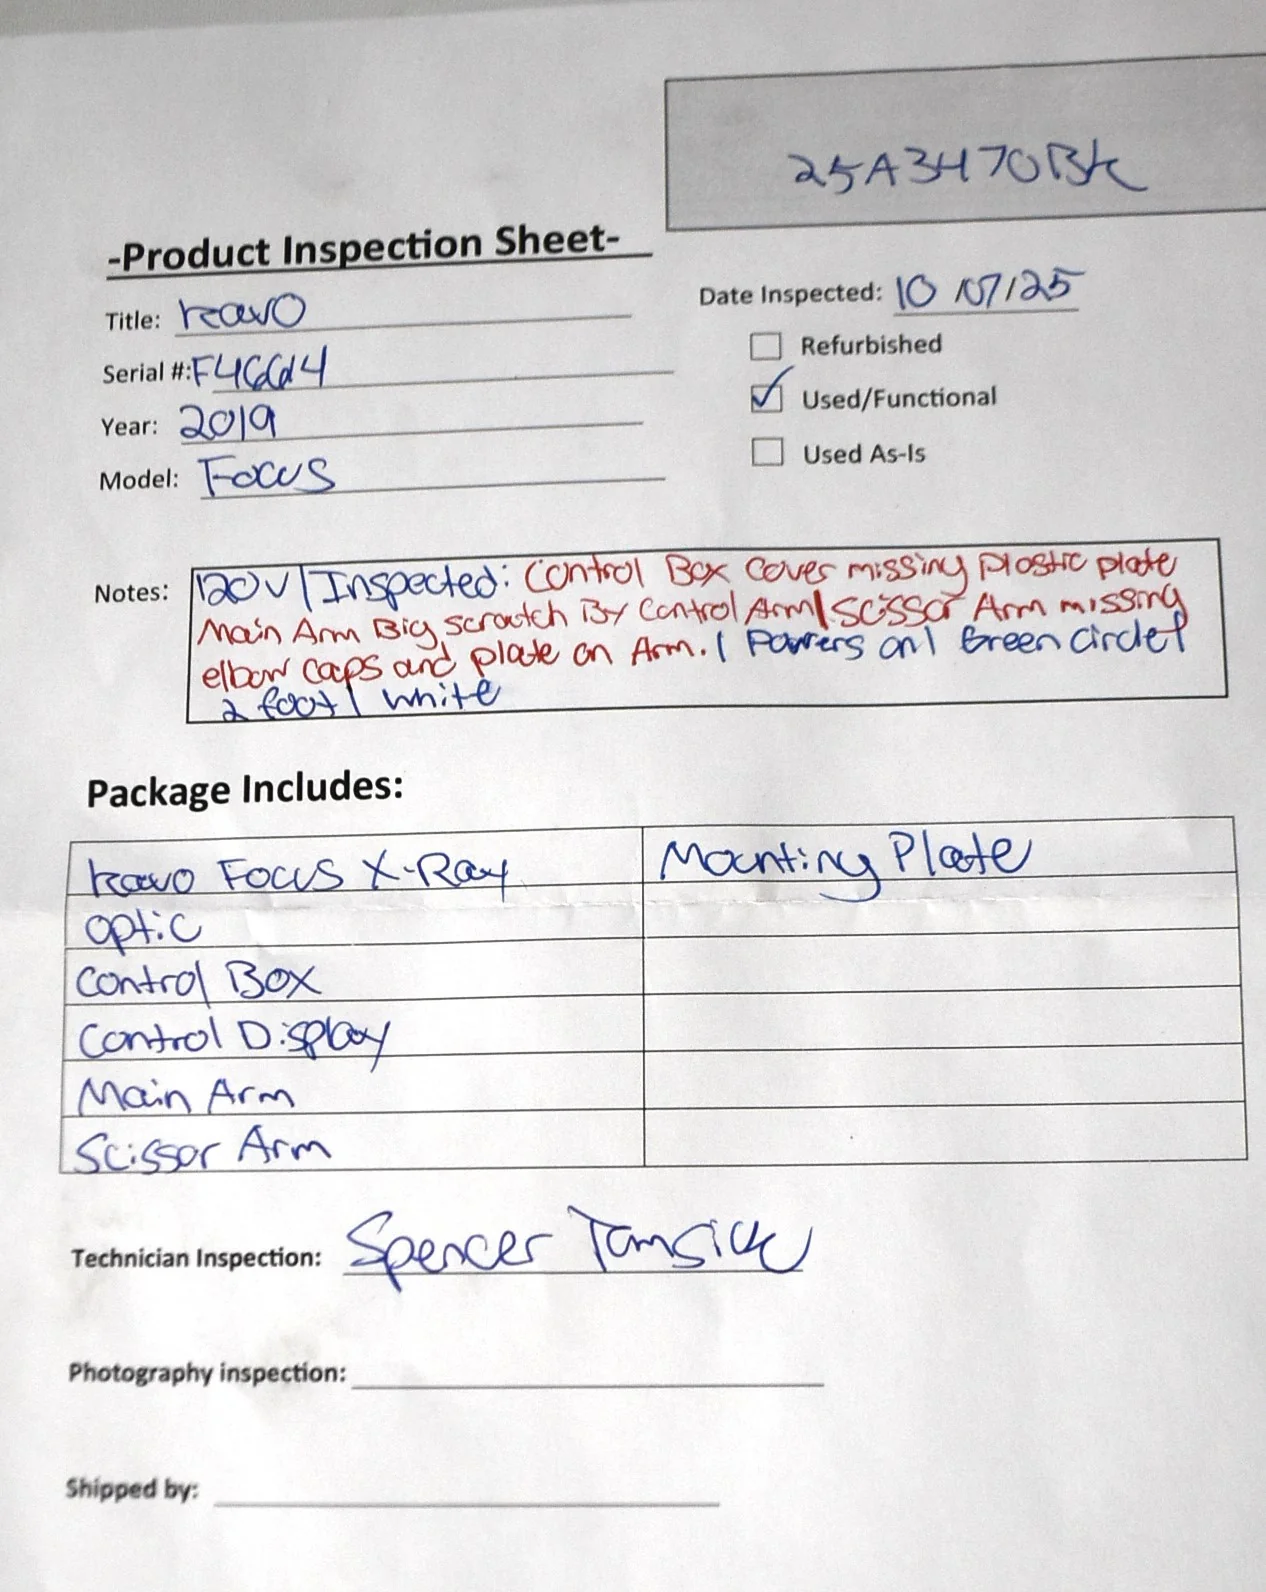 25A3470BK
-Product Inspection Sheet-
Title: Kavo
Date Inspected: 10/07/25
Refurbished
Serial #:
Used/Functional
Year: 2019
Used As-Is
Model: Focus
Notes: 120V | Inspected: Control Box Cover missing plastic plate
Main Arm Big scratch By Control Arm | Scissor Arm missing
elbow caps and plate on Arm. | Powers on | Green circle |
2 foot | White
Package Includes:
Kavo Focus X-Ray
Mounting Plate
Optic
Control Box
Control Display
Main Arm
Scissor Arm
Technician Inspection: Spencer
Photography inspection:
Shipped by: